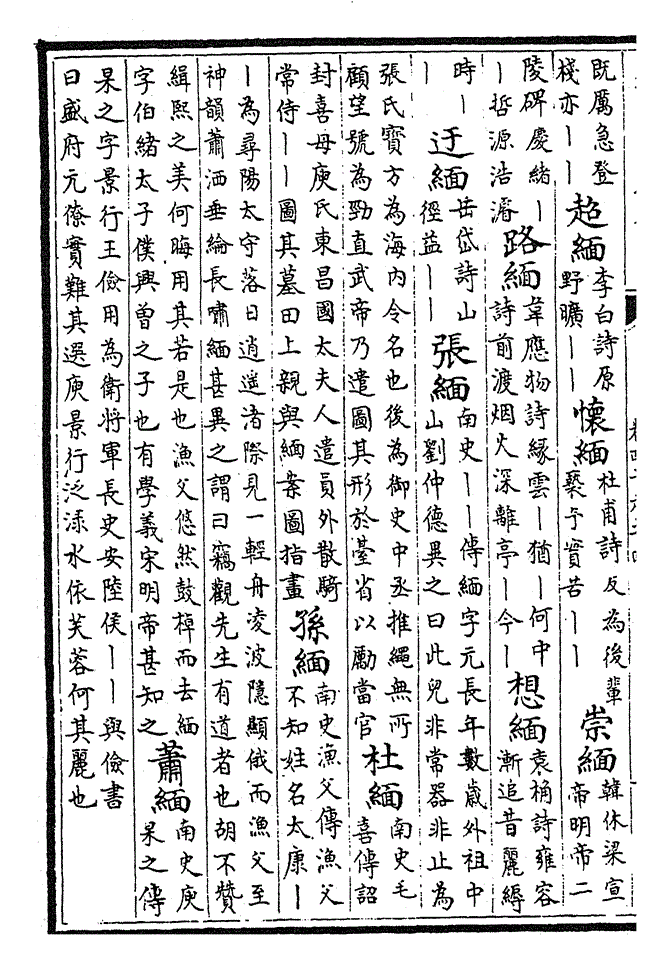 既厲急登
棧亦｜｜
超緬
李白詩原
野曠｜｜
懷緬
杜甫詩反為後輩
褻予實苦｜｜
崇緬
韓休梁宣
帝明帝二
陵碑慶緒｜
｜哲源浩濬
路緬
韋應物詩緣雲｜猶｜何中
詩前渡烟火深離亭｜今｜
想緬
袁桷詩雍容
漸追昔麗縟
時｜
｜
迂緬
岳岱詩山
徑益｜｜
張緬
南史｜｜傳緬字元長年數歲外祖中
山劉仲德異之曰此兒非常器非止為
張氏寳方為海内令名也後為御史中丞推繩無所
顧望號為勁直武帝乃遣圖其形於臺省以勵當官
杜緬
南史毛
喜傳詔
封喜母庾氏東昌國太夫人遣員外散騎
常侍｜｜圖其墓田上親與緬案圖指畫
孫緬
南史漁父傳漁父
不知姓名太康｜
｜為尋陽太守落日逍遥渚際見一輕舟凌波隱顯俄而漁父至
神韻蕭洒垂綸長嘯緬甚異之謂曰竊觀先生有道者也胡不贊
緝熙之美何晦用其若是也漁父悠然鼓棹而去緬
字伯緒太子僕興曽之子也有學義宋明帝甚知之
蕭緬
南史庾
杲之傳
杲之字景行王儉用為衛將軍長史安陸侯｜｜與儉書
曰盛府元僚實難其選庾景行泛渌水依芙蓉何其麗也